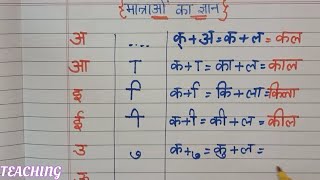 {मात्राओं का ज्ञान}
अ .... क्+अ=क+ल=कल
आ ा क+ा=का+ल=काल
इ ि क+ि=कि+ला=किला
ई ी क+ी=की+ल=कील
उ ु क+ु=कु+ल=
TEACHING